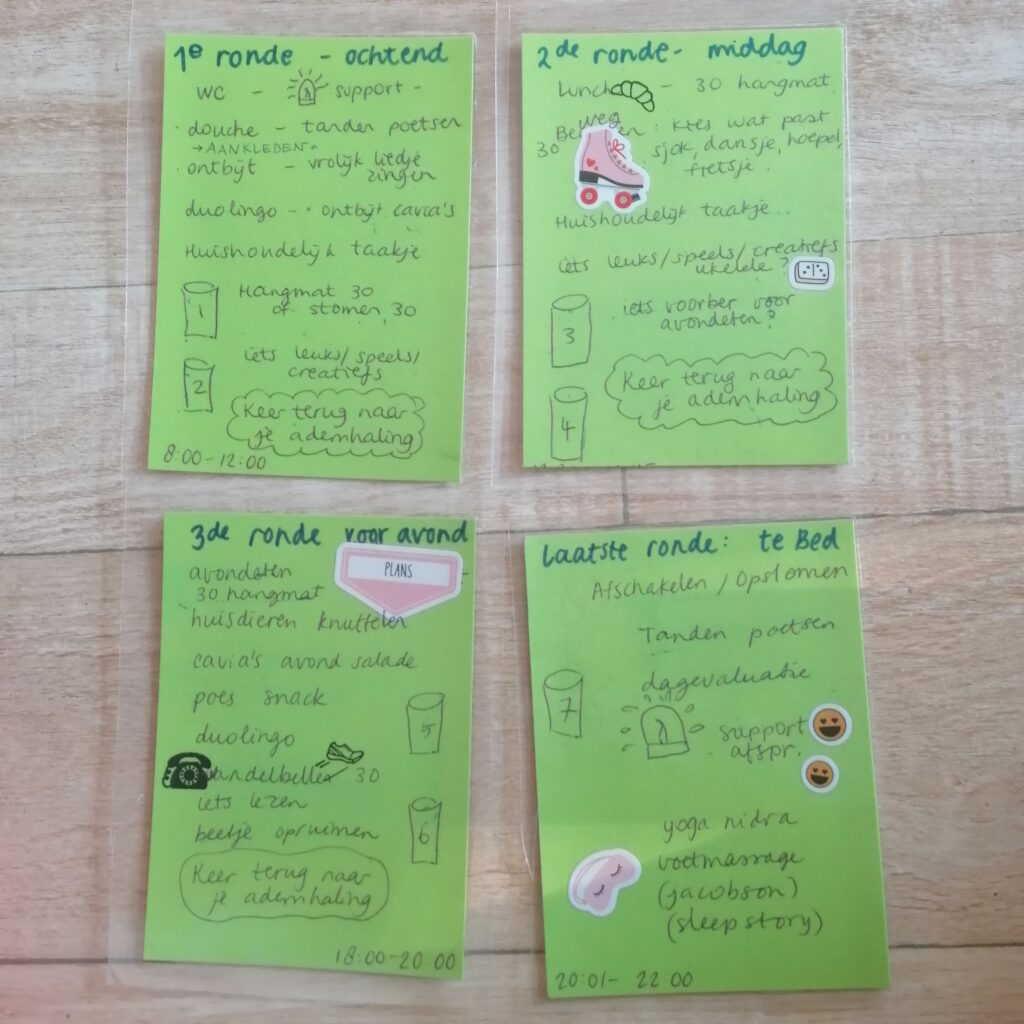 1e ronde - ochtend
WC - support -
douche - tanden poetsen
→ AANKLEDEN
ontbijt - vrolijk liedje
zingen
duolingo - ontbijt cavia's
Huishoudelijk taakje
Hangmat 30
1
of stomen 30
iets leuks/speels/
creatiefs
2
Keer terug naar
je ademhaling
8:00-12:00
2de ronde - middag
Lunch - 30 hangmat
weg
30 : kies wat past
sjok, dansje, hoepel,
fietsje
Huishoudelijk taakje
iets leuks/speels/creatiefs
ukelele?
iets voorber voor
3
avondeten?
Keer terug naar
je ademhaling
4
3de ronde vooravond
PLANS
avondeten
30 hangmat
huisdieren knuffelen
cavia's avond salade
poes snack
5
duolingo
wandelbellen 30
iets lezen
beetje opruimen
6
Keer terug naar
je ademhaling
18:00-20:00
Laatste ronde: te Bed
Afschakelen / Opslomen
Tanden poetsen
dagevaluatie
7
support
afspr.
yoga nidra
voetmassage
(jacobson)
(sleepstory)
20:01- 22:00